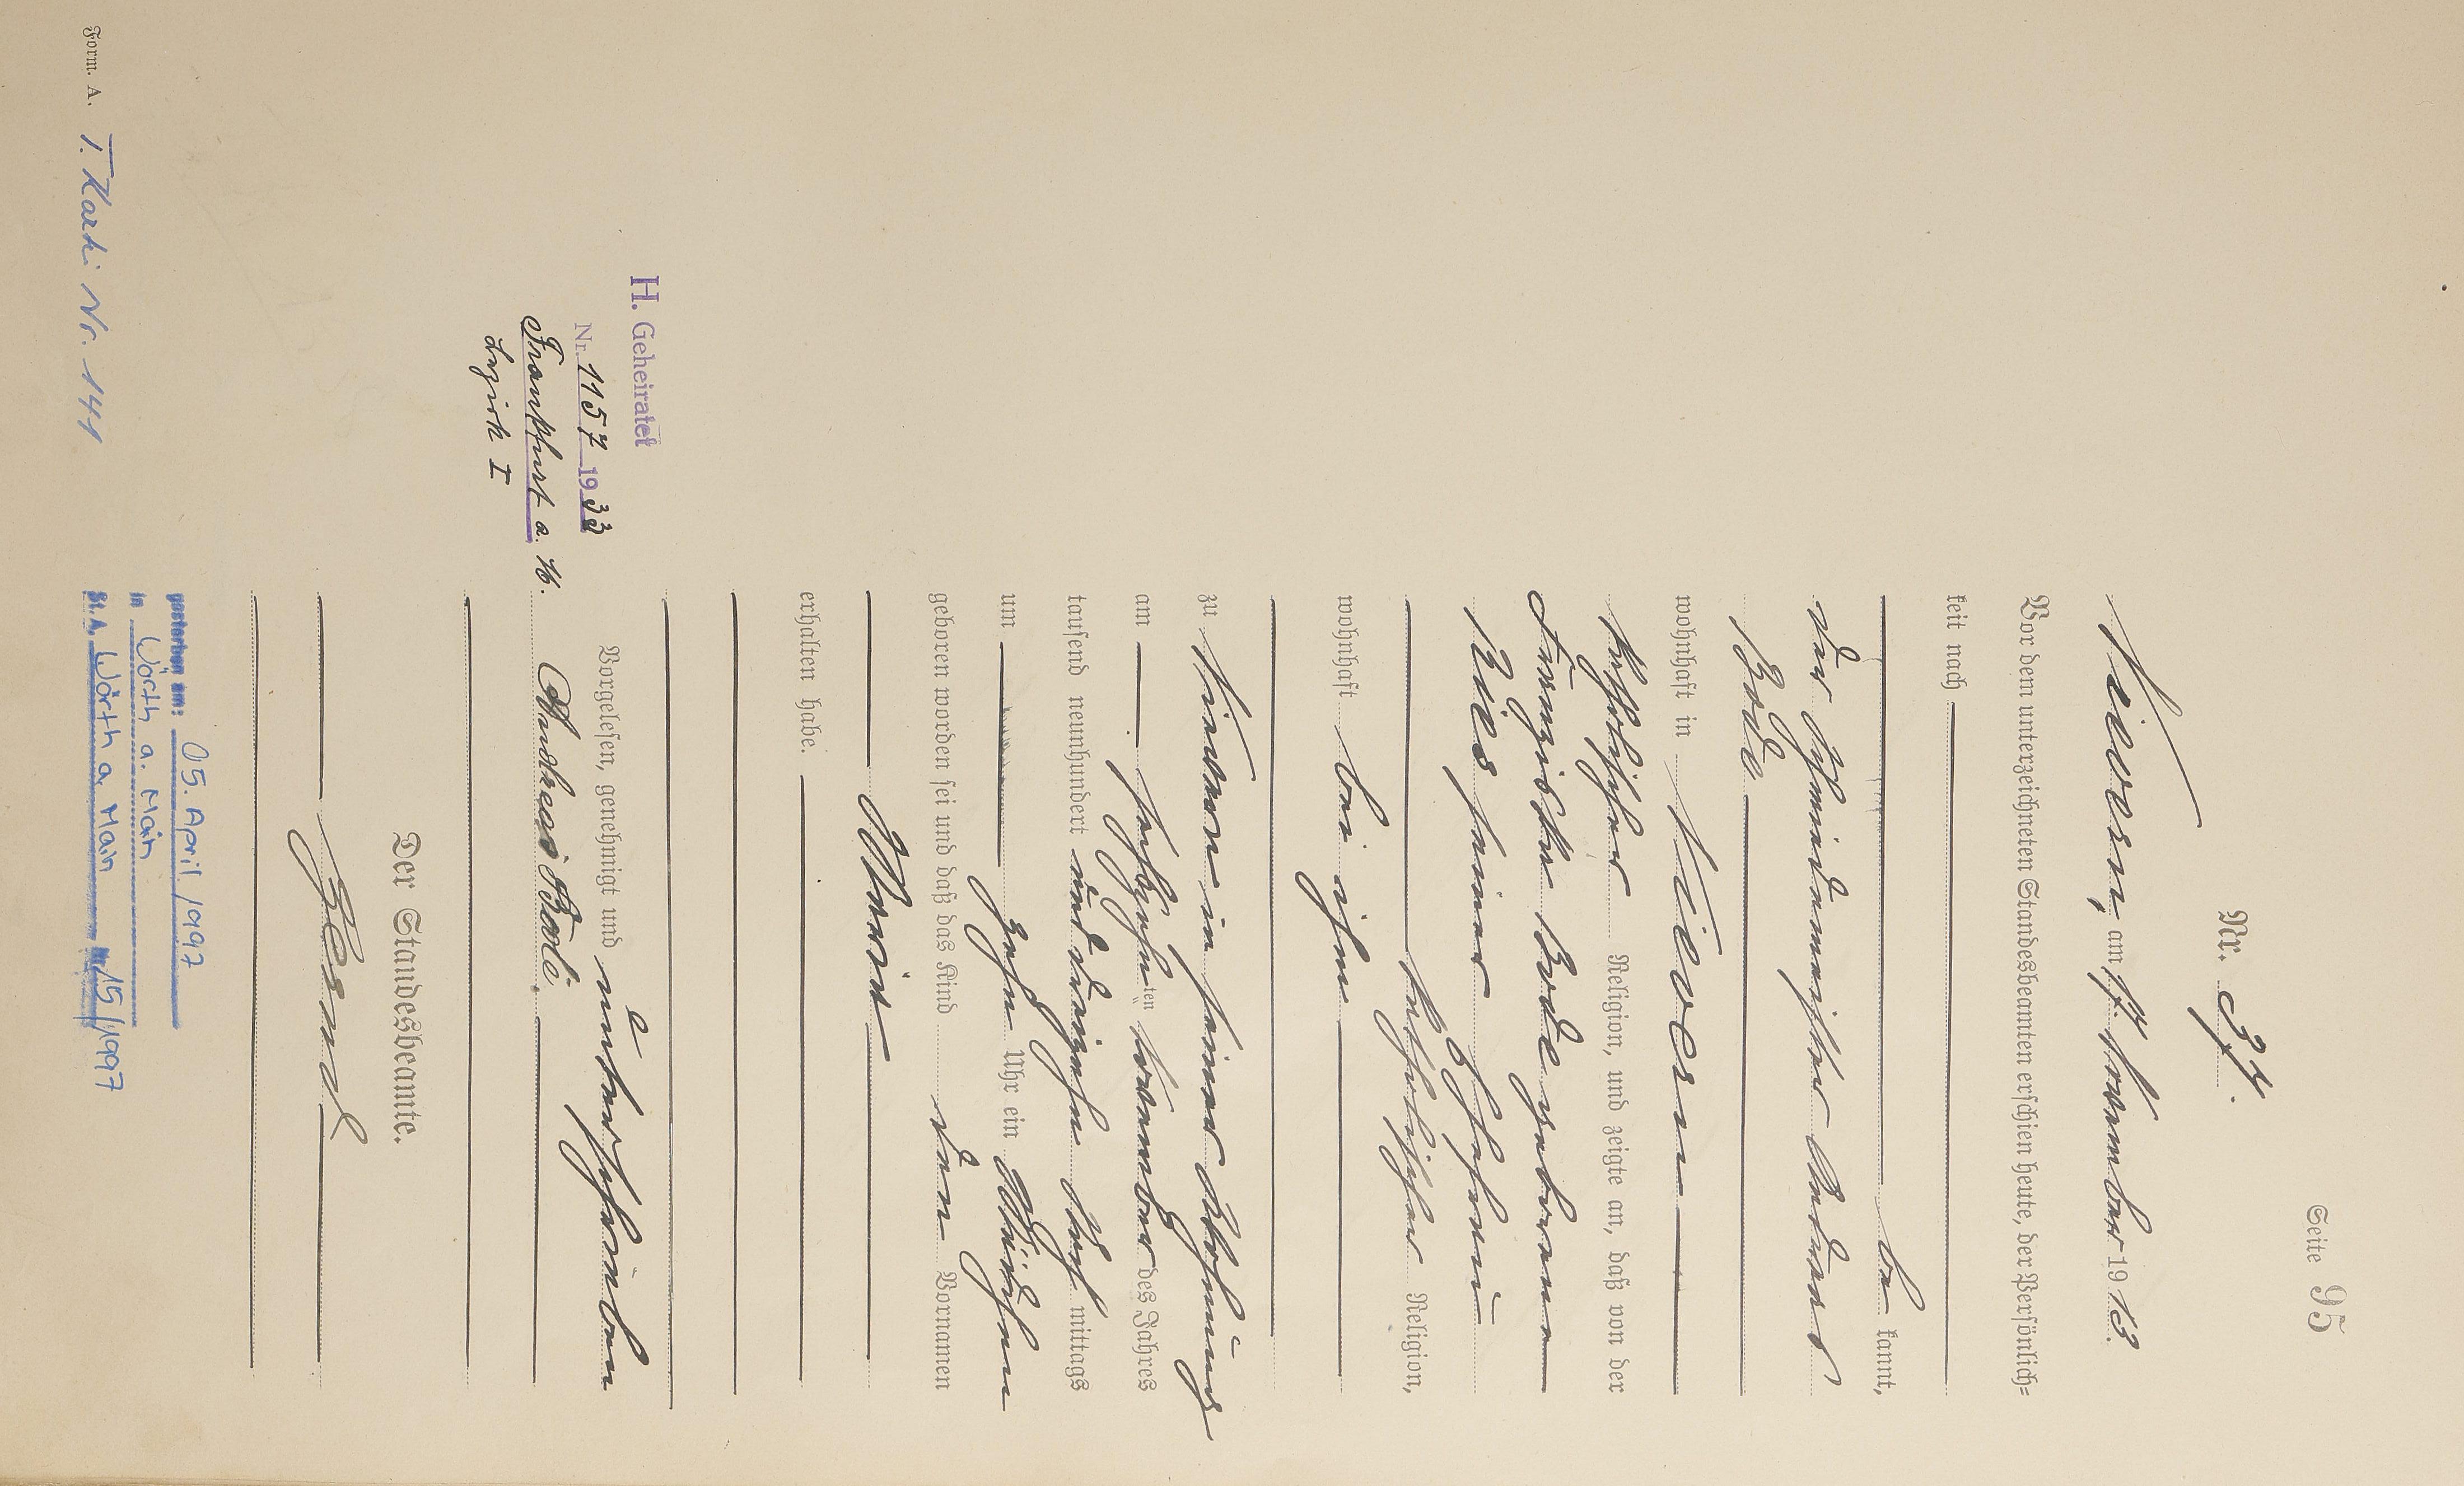 Seite 95
Nr. 34.
Nievern, am 17. November 1913.
Vor dem unterzeichneten Standesbeamten erschien heute, der Persönlich=
keit nach
be kannt,
der Schmiedemeister Andreas
Bode
wohnhaft in Nievern
katholischer Religion, und zeigte an, daß von der
Franziska Bode geborene
Ries seiner Ehefrau
katholischer Religion,
wohnhaft bei ihm
zu Nievern in seiner Wohnung
am sechszehn ten November des Jahres
tausend neunhundert und dreizehn Nach mittags
um zehn Uhr ein Mädchen
geboren worden sei und daß das Kind den Vornamen
Maria
erhalten habe.
Vorgelesen, genehmigt und unterschrieben
Andreas Bode.
Der Standesbeamte.
H. Geheiratet
Nr. 1157 1933
Frankfurt a. M.
Bezirk I
gestorben am: 05. April 1997
in Wörth a. Main
St. A. Wörth a. Main Nr. 15/1997
Form. A. T. Kartei Nr. 141